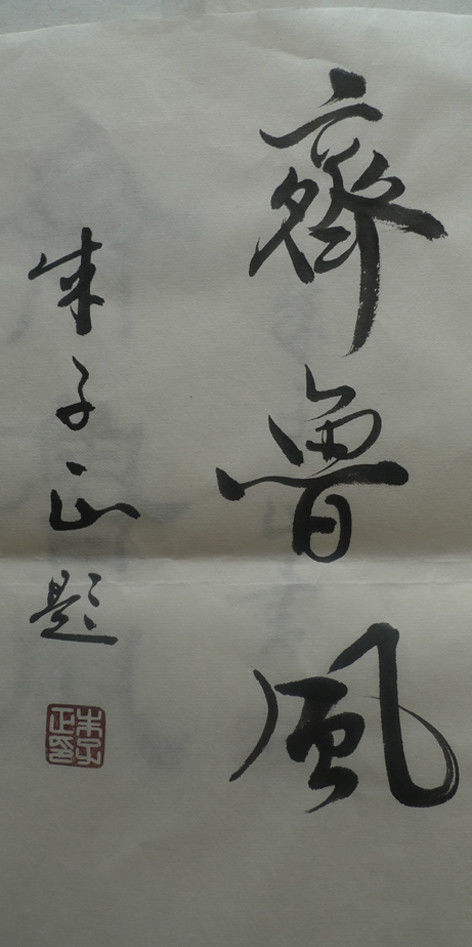 齊魯風
朱子正題
朱子正印